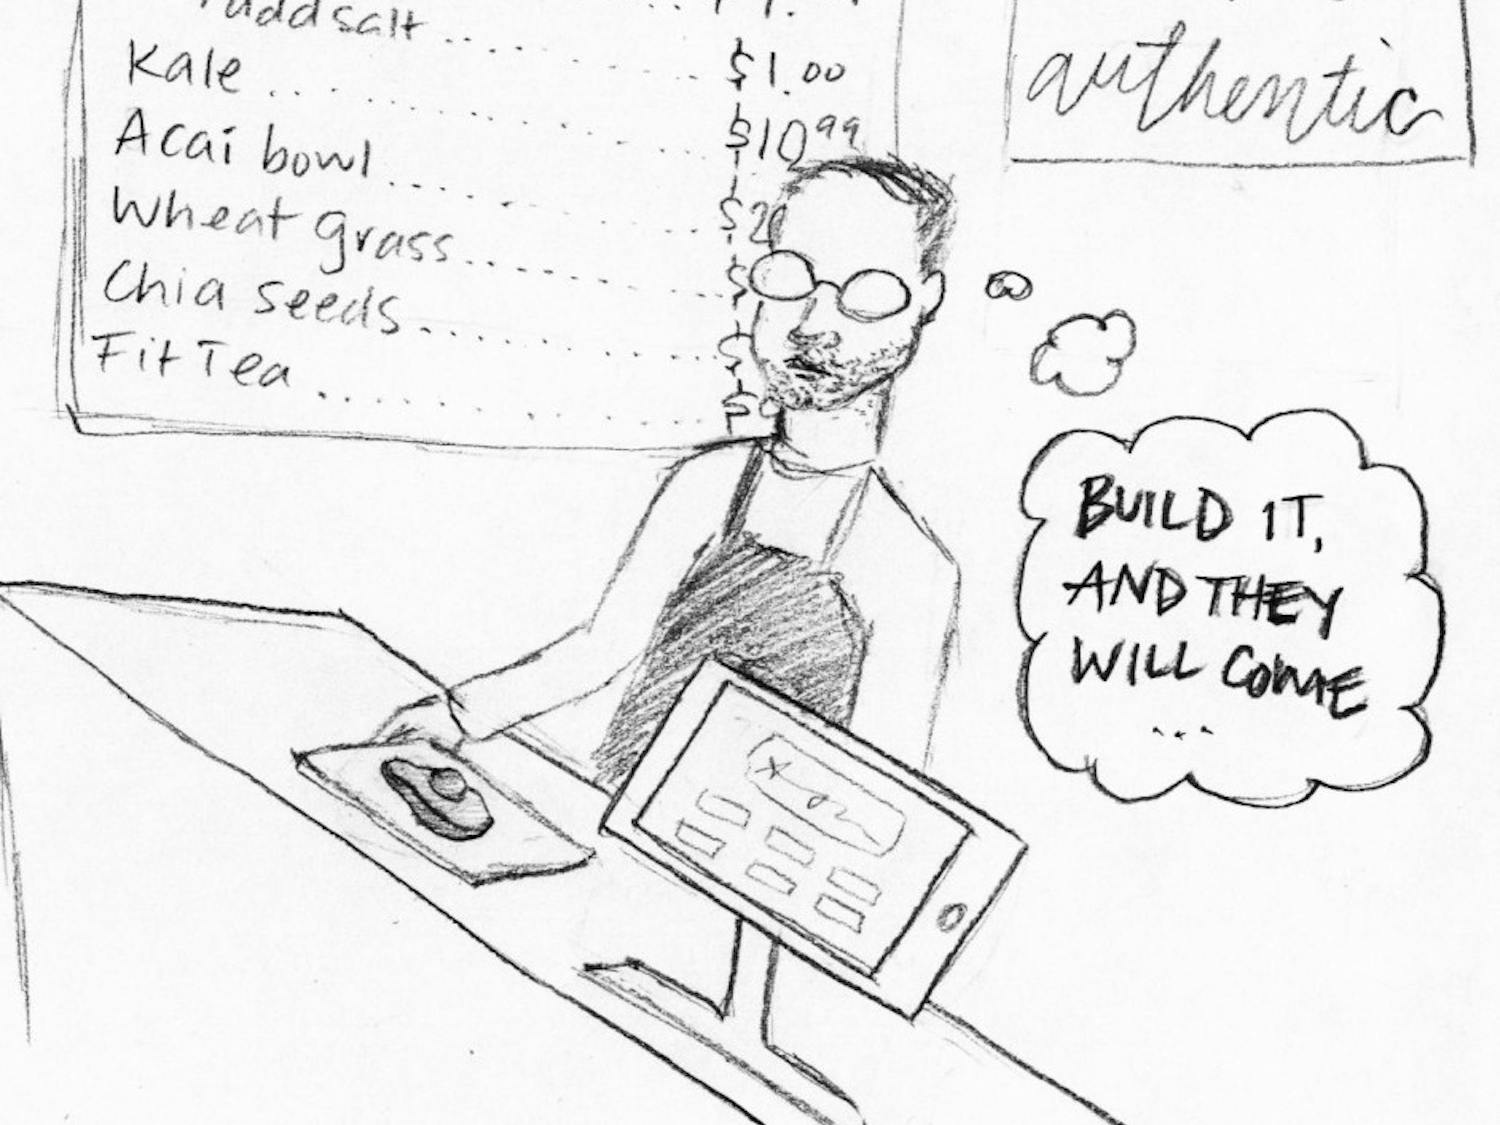 add salt ....
Kale .... $1.00
Acai bowl .... $10.99
Wheat grass .... $2
Chia seeds .... $
Fit Tea .... $
authentic
BUILD IT,
AND THEY
WILL COME
...